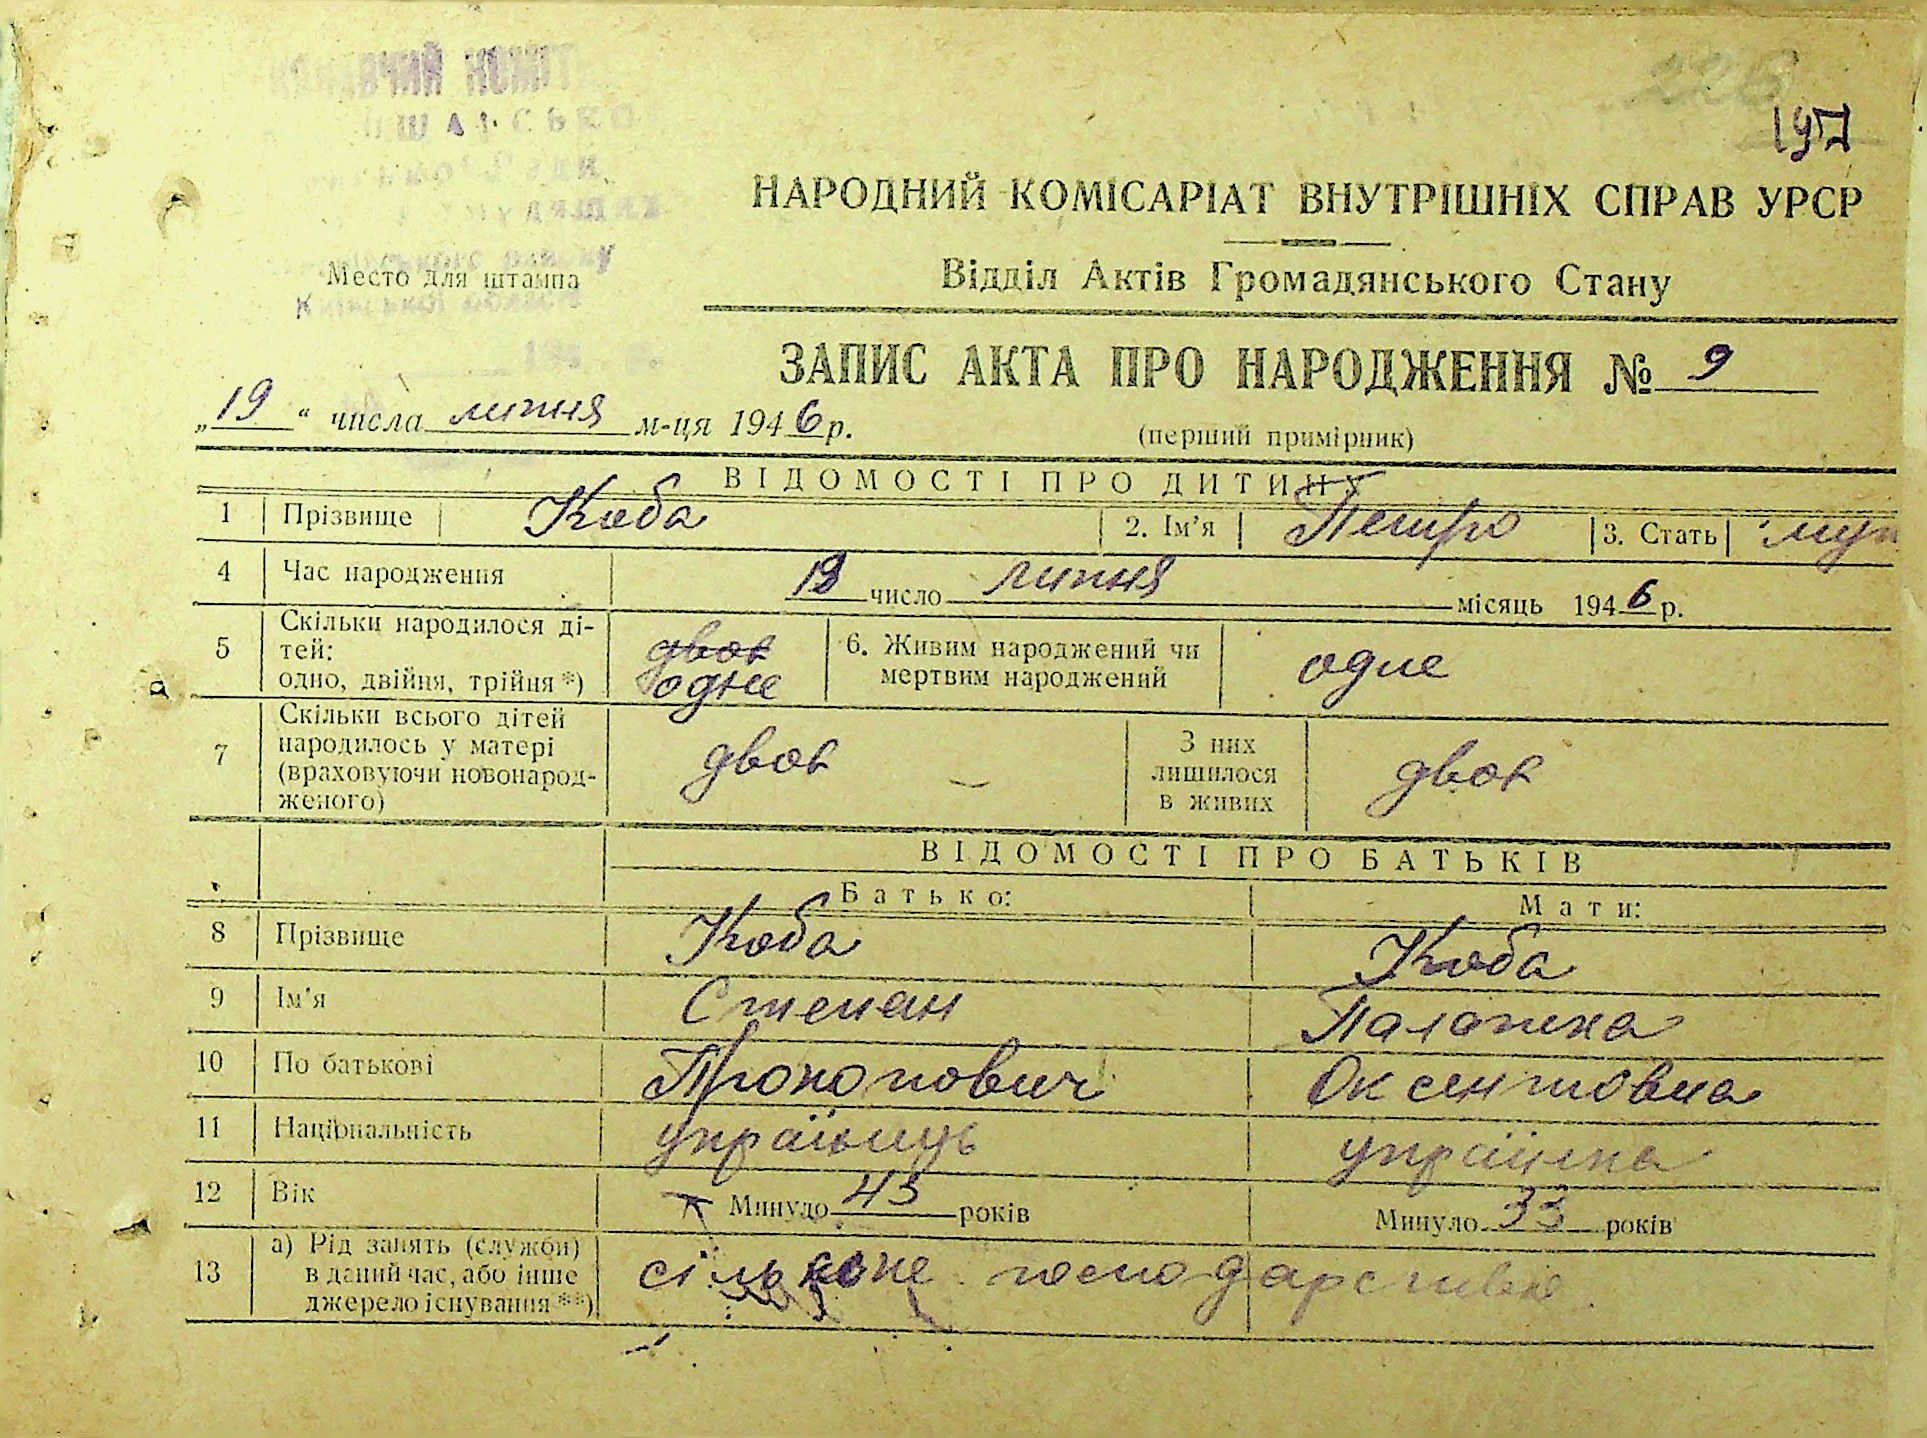 197
НАРОДНИЙ КОМІСАРІАТ ВНУТРІШНІХ СПРАВ УРСР
Место для штампа
Відділ Актів Громадянського Стану
ЗАПИС АКТА ПРО НАРОДЖЕННЯ № 9
„19“ числа липня м-ця 1946 р.
(перший примірник)
ВІДОМОСТІ ПРО ДИТИНУ
1 Прізвище Коба 2. Ім'я Петро 3. Стать муж
4 Час народження число липня місяць 1946 р.
5 Скільки народилося ді-
тей:
одно, двійня, трійня *) двоє
одне
6. Живим народжений чи
мертвим народжений одне
7 Скільки всього дітей
народилось у матері
(враховуючи новонарод-
женого) двоє
З них
лишилося
в живих двоє
ВІДОМОСТІ ПРО БАТЬКІВ
Батько: Мати:
8 Прізвище Коба Коба
9 Ім'я Степан Палажка
10 По батькові Прокопович Оксентовна
11 Національність українець українка
12 Вік Минуло 43 років Минуло 33 років
13 а) Рід занять (служби)
в даний час, або інше
джерело існування **) сільське господарство